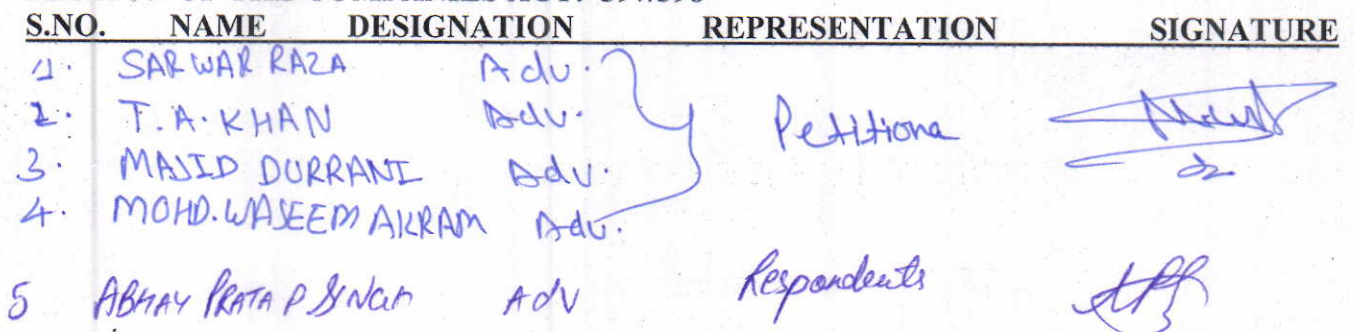 S.NO. NAME DESIGNATION REPRESENTATION SIGNATURE
1. SARWAR RAZA Adv.
2. T.A. KHAN Adv. Petitiona
3. MAJID DURRANI Adv.
4. MOHD. WASEEM AKRAM Adv.
5 ABHAY PRATAP SINGH Adv Respondents